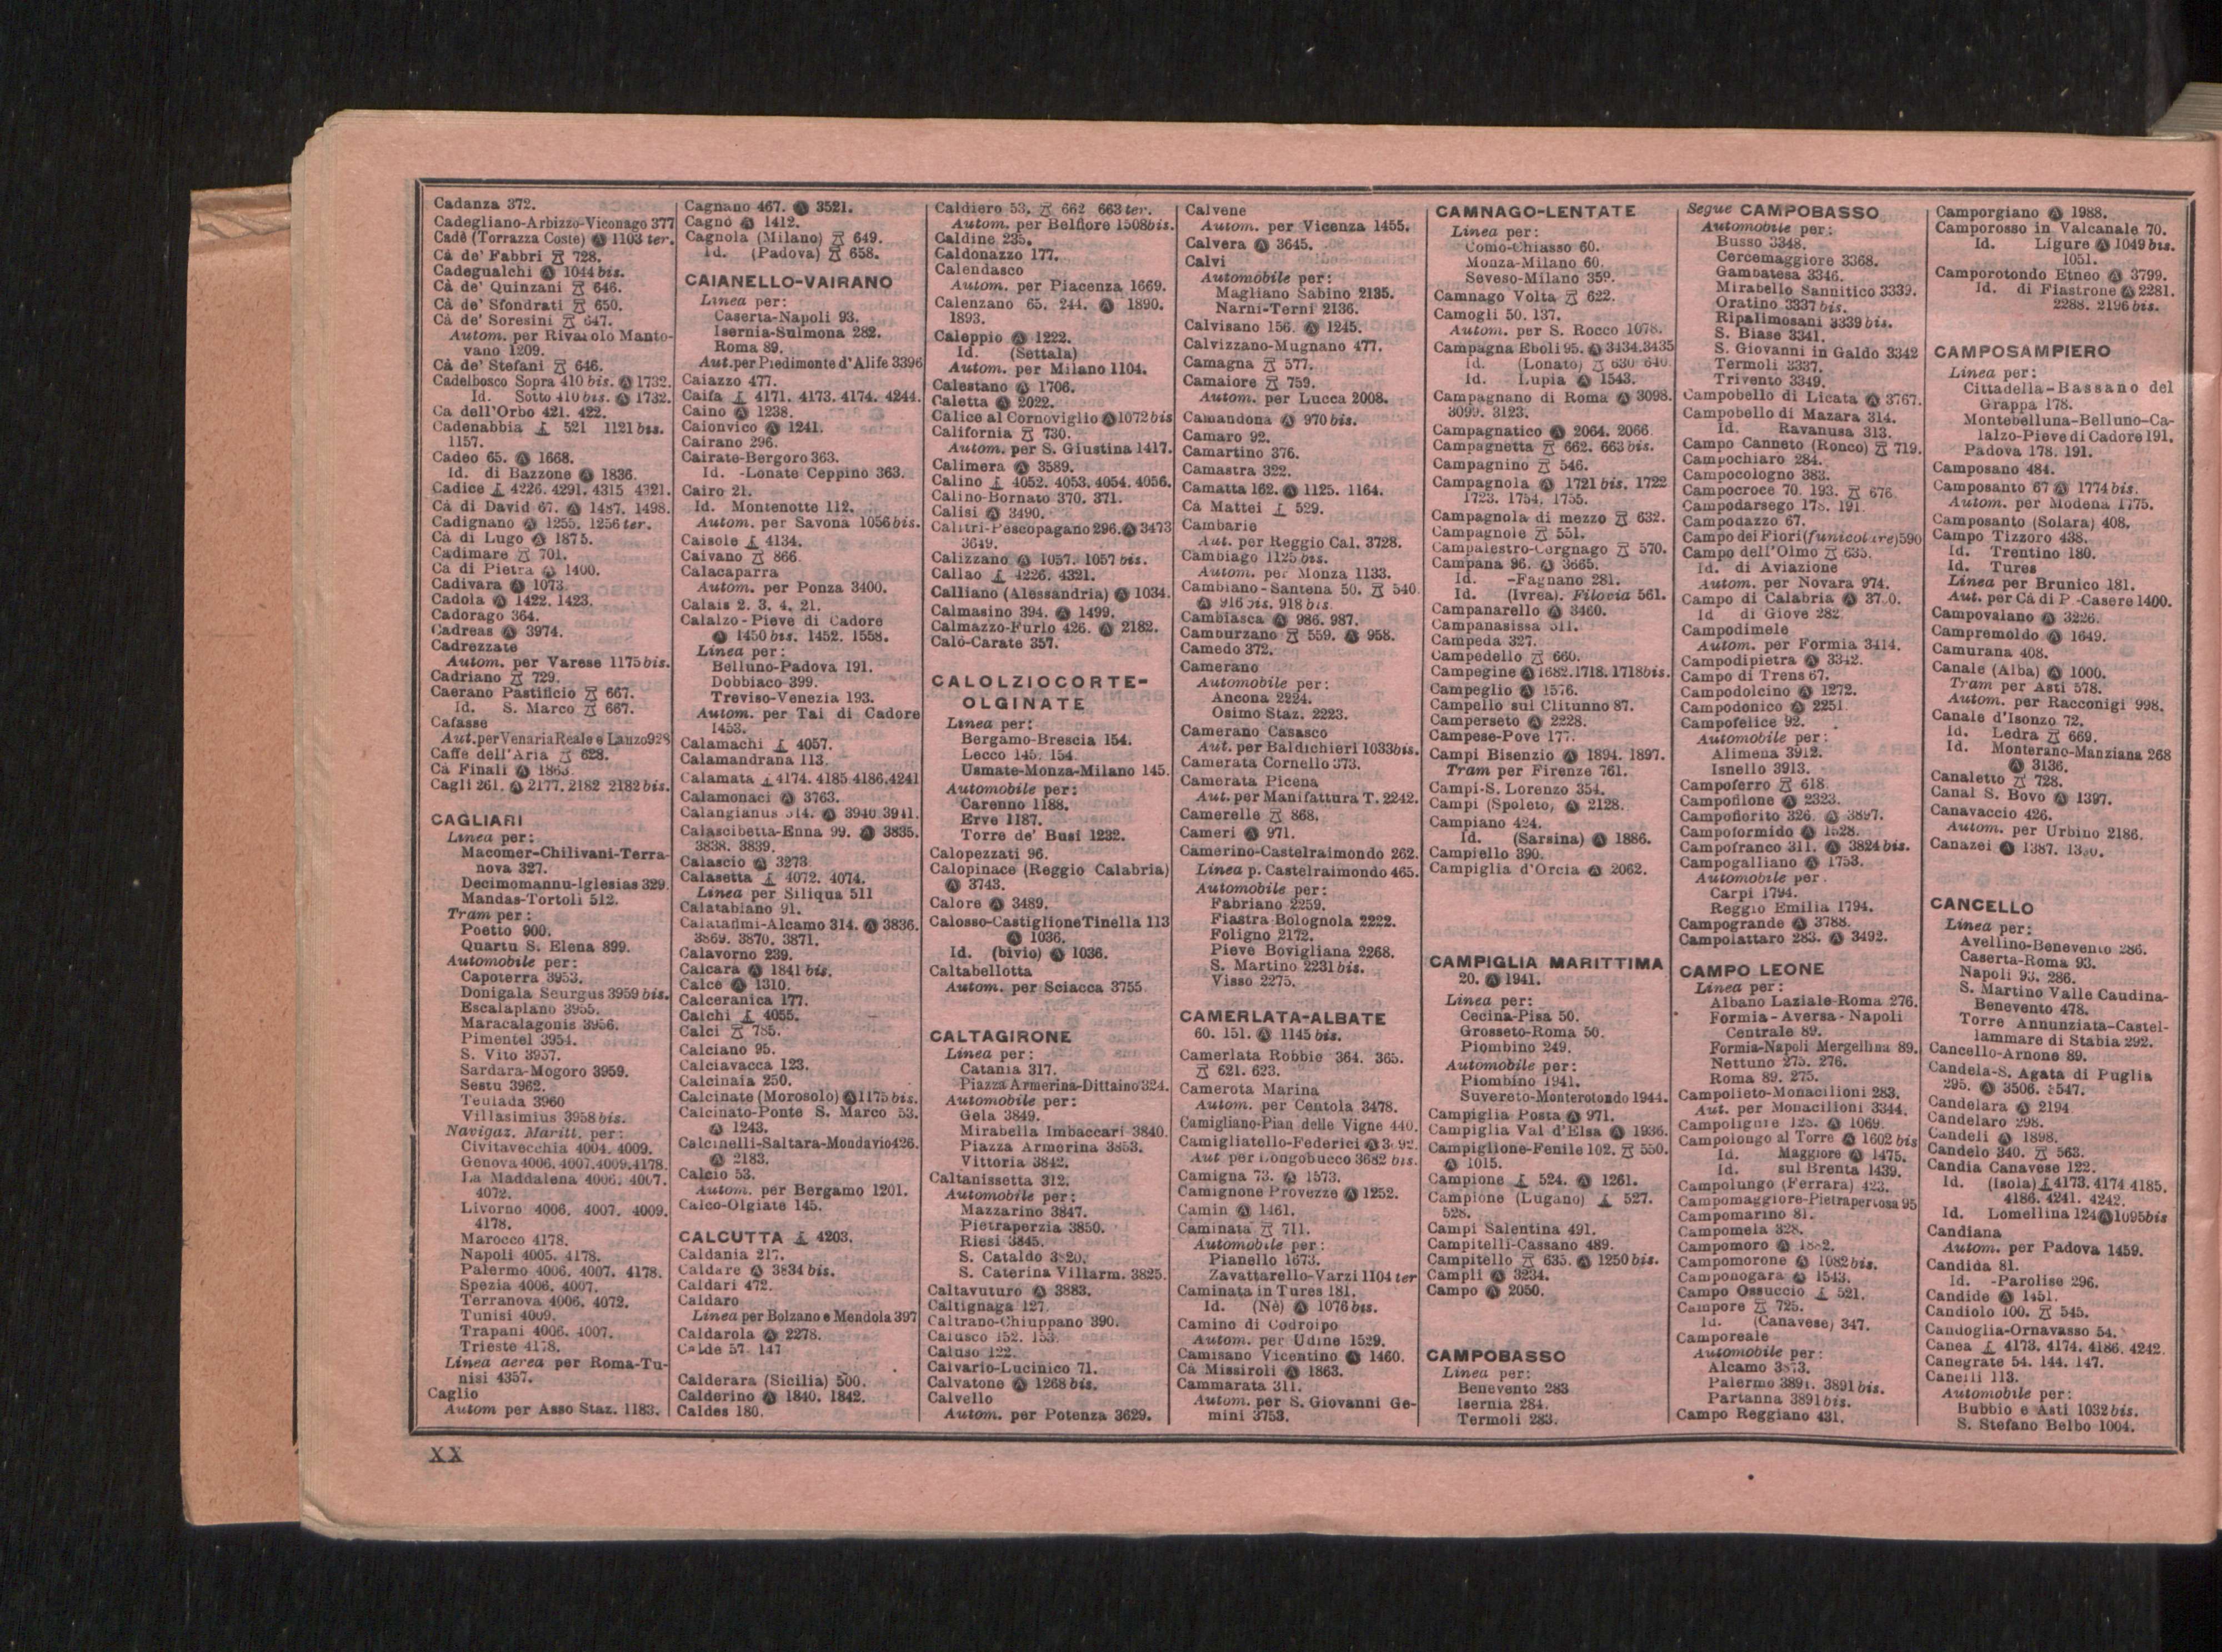 Cadanza 372.
Cadegliano-Arbizzo-Viconago 377
Cadè (Torrazza Coste) Ⓐ 1103 ter.
Cà de' Fabbri 728.
Cadegualchi Ⓐ 1044 bis.
Cà de' Quinzani 646.
Cà de' Sfondrati 650.
Cà de' Soresini 647.
Autom. per Rivarolo Manto-
vano 1209.
Cà de' Stefani 646.
Cadelbosco Sopra 410 bis. Ⓐ 1732.
Id. Sotto 410 bis. Ⓐ 1732.
Ca dell'Orbo 421. 422.
Cadenabbia 521 1121 bis.
1157.
Cadeo 65. Ⓐ 1668.
Id. di Bazzone Ⓐ 1836.
Cadice 4226. 4291. 4315 4321.
Cà di David 67. Ⓐ 1487. 1498.
Cadignano Ⓐ 1255. 1256 ter.
Cà di Lugo Ⓐ 1875.
Cadimare 701.
Cà di Pietra Ⓐ 1400.
Cadivara Ⓐ 1073
Cadola Ⓐ 1422. 1423.
Cadorago 364.
Cadreas Ⓐ 3974.
Cadrezzate
Autom. per Varese 1175 bis.
Cadriano 729.
Caerano Pastificio 667.
Id. S. Marco 667.
Cafasse
Aut. per Venaria Reale e Lanzo 928
Caffe dell'Aria 628.
Cà Finali Ⓐ 1863.
Cagli 261. Ⓐ 2177. 2182 2182 bis.
CAGLIARI
Linea per:
Macomer-Chilivani-Terra-
nova 327.
Decimomannu-Iglesias 329.
Mandas-Tortoli 512.
Tram per:
Poetto 900.
Quartu S. Elena 899.
Automobile per:
Capoterra 3953.
Donigala Seurgus 3959 bis.
Escalaplano 3955.
Maracalagonis 3956.
Pimentel 3954.
S. Vito 3957.
Sardara-Mogoro 3959.
Sestu 3962.
Teulada 3960
Villasimius 3958 bis.
Navigaz. Maritt. per:
Civitavecchia 4004. 4009.
Genova 4006. 4007. 4009. 4178.
La Maddalena 4006. 4007.
4072.
Livorno 4006. 4007. 4009.
4178.
Marocco 4178.
Napoli 4005. 4178.
Palermo 4006. 4007. 4178.
Spezia 4006. 4007.
Terranova 4006. 4072.
Tunisi 4009.
Trapani 4006. 4007.
Trieste 4178.
Linea aerea per Roma-Tu-
nisi 4357.
Caglio
Autom per Asso Staz. 1183.
Cagnano 467. Ⓐ 3521.
Cagnò Ⓐ 1412.
Cagnola (Milano) 649.
Id. (Padova) 658.
CAIANELLO-VAIRANO
Linea per:
Caserta-Napoli 93.
Isernia-Sulmona 282.
Roma 89.
Aut. per Piedimonte d'Alife 3396
Caiazzo 477.
Caifa 4171. 4173. 4174. 4244.
Caino Ⓐ 1238.
Caionvico Ⓐ 1241.
Cairano 296.
Cairate-Bergoro 363.
Id. -Lonate Ceppino 363.
Cairo 21.
Id. Montenotte 112.
Autom. per Savona 1056 bis.
Caisole 4134.
Caivano 866
Calacaparra
Autom. per Ponza 3400.
Calais 2. 3. 4. 21.
Calalzo-Pieve di Cadore
Ⓐ 1450 bis. 1452. 1558.
Linea per:
Belluno-Padova 191.
Dobbiaco 399.
Treviso-Venezia 193.
Autom. per Tai di Cadore
1453.
Calamachi 4057.
Calamandrana 113.
Calamata 4174. 4185 4186. 4241
Calamonaci Ⓐ 3763.
Calangianus 514. Ⓐ 3940 3941.
Calascibetta-Enna 99. Ⓐ 3835.
3838. 3839.
Calascio Ⓐ 3273
Calasetta 4072. 4074.
Linea per Siliqua 511
Calatabiano 91.
Calatafimi-Alcamo 314. Ⓐ 3836.
3869. 3870. 3871.
Calavorno 239.
Calcara Ⓐ 1841 bis.
Calce Ⓐ 1310.
Calceranica 177.
Calchi 4055.
Calci 785.
Calciano 95.
Calciavacca 123.
Calcinaia 250.
Calcinate (Morosolo) Ⓐ 1175 bis.
Calcinato-Ponte S. Marco 53.
Ⓐ 1243.
Calcinelli-Saltara-Mondavio 426.
Ⓐ 2183.
Calcio 53.
Autom. per Bergamo 1201.
Calco-Olgiate 145.
CALCUTTA 4203.
Caldania 217.
Caldare Ⓐ 3834 bis.
Caldari 472.
Caldaro
Linea per Bolzano e Mendola 397
Caldarola Ⓐ 2278.
Caldè 57. 147
Calderara (Sicilia) 500.
Calderino Ⓐ 1840. 1842.
Caldes 180.
Caldiero 53. 662 663 ter.
Autom. per Belfiore 1508 bis.
Caldine 235.
Caldonazzo 177.
Calendasco
Autom. per Piacenza 1669.
Calenzano 65. 244. Ⓐ 1890.
1893.
Caleppio Ⓐ 1222.
Id. (Settala)
Autom. per Milano 1104.
Calestano Ⓐ 1706.
Caletta Ⓐ 2022.
Càlice al Cornoviglio Ⓐ 1072 bis
California 730.
Autom. per S. Giustina 1417.
Calimera Ⓐ 3589.
Calino 4052. 4053. 4054. 4056.
Calino-Bornato 370. 371.
Calisi Ⓐ 3490.
Calitri-Pescopagano 296. Ⓐ 3473
3649.
Calizzano Ⓐ 1057. 1057 bis.
Callao 4226. 4321.
Calliano (Alessandria) Ⓐ 1034.
Calmasino 394. Ⓐ 1499.
Calmazzo-Furlo 426. Ⓐ 2182.
Calò-Carate 357.
CALOLZIOCORTE-
OLGINATE
Linea per:
Bergamo-Brescia 154.
Lecco 145. 154.
Usmate-Monza-Milano 145.
Automobile per:
Carenno 1188.
Erve 1187.
Torre de' Busi 1232.
Calopezzati 96.
Calopinace (Reggio Calabria)
Ⓐ 3743.
Calore Ⓐ 3489.
Calosso-Castiglione Tinella 113
Ⓐ 1036.
Id. (bivio) Ⓐ 1036.
Caltabellotta
Autom. per Sciacca 3755.
CALTAGIRONE
Linea per:
Catania 317.
Piazza Armerina-Dittaino 324.
Automobile per:
Gela 3849.
Mirabella Imbaccari 3840.
Piazza Armerina 3853.
Vittoria 3842.
Caltanissetta 312.
Automobile per:
Mazzarino 3847.
Pietraperzia 3850.
Riesi 3845.
S. Cataldo 3820.
S. Caterina Villarm. 3825.
Caltavuturo Ⓐ 3883.
Caltignaga 127.
Caltrano-Chiuppano 390.
Calusco 152. 153.
Caluso 122.
Calvario-Lucinico 71.
Calvatone Ⓐ 1268 bis.
Calvello
Autom. per Potenza 3629.
Calvene
Autom. per Vicenza 1455.
Calvera Ⓐ 3645.
Calvi
Automobile per:
Magliano Sabino 2135.
Narni-Terni 2136.
Calvisano 156. Ⓐ 1245.
Calvizzano-Mugnano 477.
Camagna 577.
Camaiore 759.
Autom. per Lucca 2008.
Camandona Ⓐ 970 bis.
Camaro 92.
Camartino 376.
Camastra 322.
Camatta 162. Ⓐ 1125. 1164.
Cà Mattei 529.
Cambarie
Aut. per Reggio Cal. 3728.
Cambiago 1125 bis.
Autom. per Monza 1133.
Cambiano-Santena 50. 540
Ⓐ 916 bis. 918 bis.
Cambiasca Ⓐ 986. 987.
Camburzano 559. Ⓐ 958.
Camedo 372.
Camerano
Automobile per:
Ancona 2224.
Osimo Staz. 2223.
Camerano Casasco
Aut. per Baldichieri 1033 bis.
Camerata Cornello 373.
Camerata Picena
Aut. per Manifattura T. 2242.
Camerelle 868.
Cameri Ⓐ 971.
Camerino-Castelraimondo 262.
Linea p. Castelraimondo 465.
Automobile per:
Fabriano 2259.
Fiastra Bolognola 2222.
Foligno 2172.
Pieve Bovigliana 2268.
S. Martino 2231 bis.
Visso 2275.
CAMERLATA-ALBATE
60. 151. Ⓐ 1145 bis.
Camerlata Robbio 364. 365.
621. 623.
Camerota Marina
Autom. per Centola 3478.
Camigliano-Pian delle Vigne 440.
Camigliatello-Federici Ⓐ
Aut per Longobucco 3682 bis.
Camigna 73. Ⓐ 1573.
Camignone Provezze Ⓐ 1252.
Camin Ⓐ 1461.
Caminata 711.
Automobile per:
Pianello 1673.
Zavattarello-Varzi 1104 ter
Caminata in Tures 181.
Id. (Nè) Ⓐ 1076 bis.
Camino di Codroipo
Autom. per Udine 1529.
Camisano Vicentino Ⓐ 1460.
Cà Missiroli Ⓐ 1863.
Cammarata 311.
Autom. per S. Giovanni Ge-
mini 3753.
CAMNAGO-LENTATE
Linea per:
Como-Chiasso 60.
Monza-Milano 60.
Seveso-Milano 359.
Camnago Volta 622.
Camogli 50. 137.
Autom. per S. Rocco 1078.
Campagna Eboli 95. Ⓐ 3434. 3435
Id. (Lonato) 630 640
Id. Lupia Ⓐ 1543.
Campagnano di Roma Ⓐ 3098.
3099. 3123.
Campagnatico Ⓐ 2064. 2066.
Campagnetta 662. 663 bis.
Campagnino 546.
Campagnola Ⓐ 1721 bis. 1722
1723. 1754. 1755.
Campagnola di mezzo 632.
Campagnole 551.
Campalestro-Cergnago 570.
Campana 96. Ⓐ 3665.
Id. -Fagnano 281.
Id. (Ivrea). Filovia 561.
Campanarello Ⓐ 3460.
Campanasissa 511.
Campeda 327.
Campedello 660.
Campegine Ⓐ 1682. 1718. 1718 bis.
Campeglio Ⓐ 1576.
Campello sul Clitunno 87.
Camperseto Ⓐ 2228.
Campese-Pove 177.
Campi Bisenzio Ⓐ 1894. 1897.
Tram per Firenze 761.
Campi-S. Lorenzo 354.
Campi (Spoleto) Ⓐ 2128.
Campiano 424.
Id. (Sarsina) Ⓐ 1886.
Campiello 390.
Campiglia d'Orcia Ⓐ 2062.
CAMPIGLIA MARITTIMA
20. Ⓐ 1941.
Linea per:
Cecina-Pisa 50.
Grosseto-Roma 50.
Piombino 249.
Automobile per:
Piombino 1941.
Suvereto-Monterotondo 1944.
Campiglia Posta Ⓐ 971.
Campiglia Val d'Elsa Ⓐ 1936.
Campiglione-Fenile 102. 550.
Ⓐ 1015.
Campione 524. Ⓐ 1261.
Campione (Lugano) 527.
528.
Campi Salentina 491.
Campitelli-Cassano 489.
Campitello 635. Ⓐ 1250 bis.
Campli Ⓐ 3234.
Campo Ⓐ 2050.
CAMPOBASSO
Linea per:
Benevento 283
Isernia 284.
Termoli 283.
Segue CAMPOBASSO
Automobile per:
Busso 3348.
Cercemaggiore 3368.
Gambatesa 3346.
Mirabello Sannitico 3339.
Oratino 3337 bis.
Ripalimosani 3339 bis.
S. Biase 3341.
S. Giovanni in Galdo 3342
Termoli 3337.
Trivento 3349.
Campobello di Licata Ⓐ 3767.
Campobello di Mazara 314.
Id. Ravanusa 313.
Campo Canneto (Ronco) 719.
Campochiaro 284.
Campocologno 383.
Campocroce 70. 193. 676
Campodarsego 178. 191
Campodazzo 67.
Campo dei Fiori (funicolare) 590
Campo dell'Olmo 635.
Id. di Aviazione
Autom. per Novara 974.
Campo di Calabria Ⓐ
Id di Giove 282
Campodimele
Autom. per Formia 3414.
Campodipietra Ⓐ 3342.
Campo di Trens 67.
Campodolcino Ⓐ 1272.
Campodonico Ⓐ 2251
Campofelice 92.
Automobile per:
Alimena 3912.
Isnello 3913.
Campoferro 618
Campofilone Ⓐ 2323.
Campofiorito 326 Ⓐ 3897.
Campoformido Ⓐ 1528.
Campofranco 311. Ⓐ 3824 bis.
Campogalliano Ⓐ 1753.
Automobile per
Carpi 1794.
Reggio Emilia 1794.
Campogrande Ⓐ 3788.
Campolattaro 283. Ⓐ 3492.
CAMPO LEONE
Linea per:
Albano Laziale-Roma 276.
Formia-Aversa-Napoli
Centrale 89.
Formia-Napoli Mergellina 89.
Nettuno 275. 276.
Roma 89. 275.
Campolieto-Monacilioni 283.
Aut. per Monacilioni 3344.
Campoligure 125. Ⓐ 1069.
Campolongo al Torre Ⓐ 1602 bis
Id. Maggiore Ⓐ 1475.
Id. sul Brenta 1439.
Campolungo (Ferrara) 423.
Campomaggiore-Pietrapertosa 95
Campomarino 81.
Campomela 328.
Campomoro Ⓐ
Campomorone Ⓐ 1082 bis.
Camponogara Ⓐ 1543.
Campo Ossuccio 521.
Campore 725.
Id. (Canavese) 347.
Camporeale
Automobile per:
Alcamo 3873.
Palermo 3891. 3891 bis.
Partanna 3891 bis.
Campo Reggiano 431.
Camporgiano Ⓐ 1988.
Camporosso in Valcanale 70.
Id. Ligure Ⓐ 1049 bis.
1051.
Camporotondo Etneo Ⓐ 3799.
Id. di Fiastrone Ⓐ 2281.
2288. 2196 bis.
CAMPOSAMPIERO
Linea per:
Cittadella-Bassano del
Grappa 178.
Montebelluna-Belluno-Ca-
lalzo-Pieve di Cadore 191.
Padova 178. 191.
Camposano 484.
Camposanto 67 Ⓐ 1774 bis.
Autom. per Modena 1775.
Camposanto (Solara) 408.
Campo Tizzoro 438.
Id. Trentino 180.
Id. Tures
Linea per Brunico 181.
Aut. per Cà di P.-Casere 1400.
Campovalano Ⓐ 3226.
Campremoldo Ⓐ 1649.
Camurana 408.
Canale (Alba) Ⓐ 1000.
Tram per Asti 578.
Autom. per Racconigi 998.
Canale d'Isonzo 72.
Id. Ledra 669.
Id. Monterano-Manziana 268
Ⓐ 3136.
Canaletto 728.
Canal S. Bovo Ⓐ 1397.
Canavaccio 426.
Autom. per Urbino 2186.
Canazei Ⓐ 1387.
CANCELLO
Linea per:
Avellino-Benevento 286.
Caserta-Roma 93.
Napoli 93. 286.
S. Martino Valle Caudina-
Benevento 478.
Torre Annunziata-Castel-
lammare di Stabia 292.
Cancello-Arnone 89.
Candela-S. Agata di Puglia
295. Ⓐ 3506. 3547.
Candelara Ⓐ 2194
Candelaro 298.
Candeli Ⓐ 1898.
Candelo 340. 563.
Candia Canavese 122.
Id. (Isola) 4173. 4174 4185.
4186. 4241. 4242.
Id. Lomellina 124 Ⓐ 1095 bis
Candiana
Autom. per Padova 1459.
Candida 81.
Id. -Parolise 296.
Candide Ⓐ 1451.
Candiolo 100. 545.
Candoglia-Ornavasso 54.
Canea 4173. 4174. 4186. 4242.
Canegrate 54. 144. 147.
Canelli 113.
Automobile per:
Bubbio e Asti 1032 bis.
S. Stefano Belbo 1004.
XX